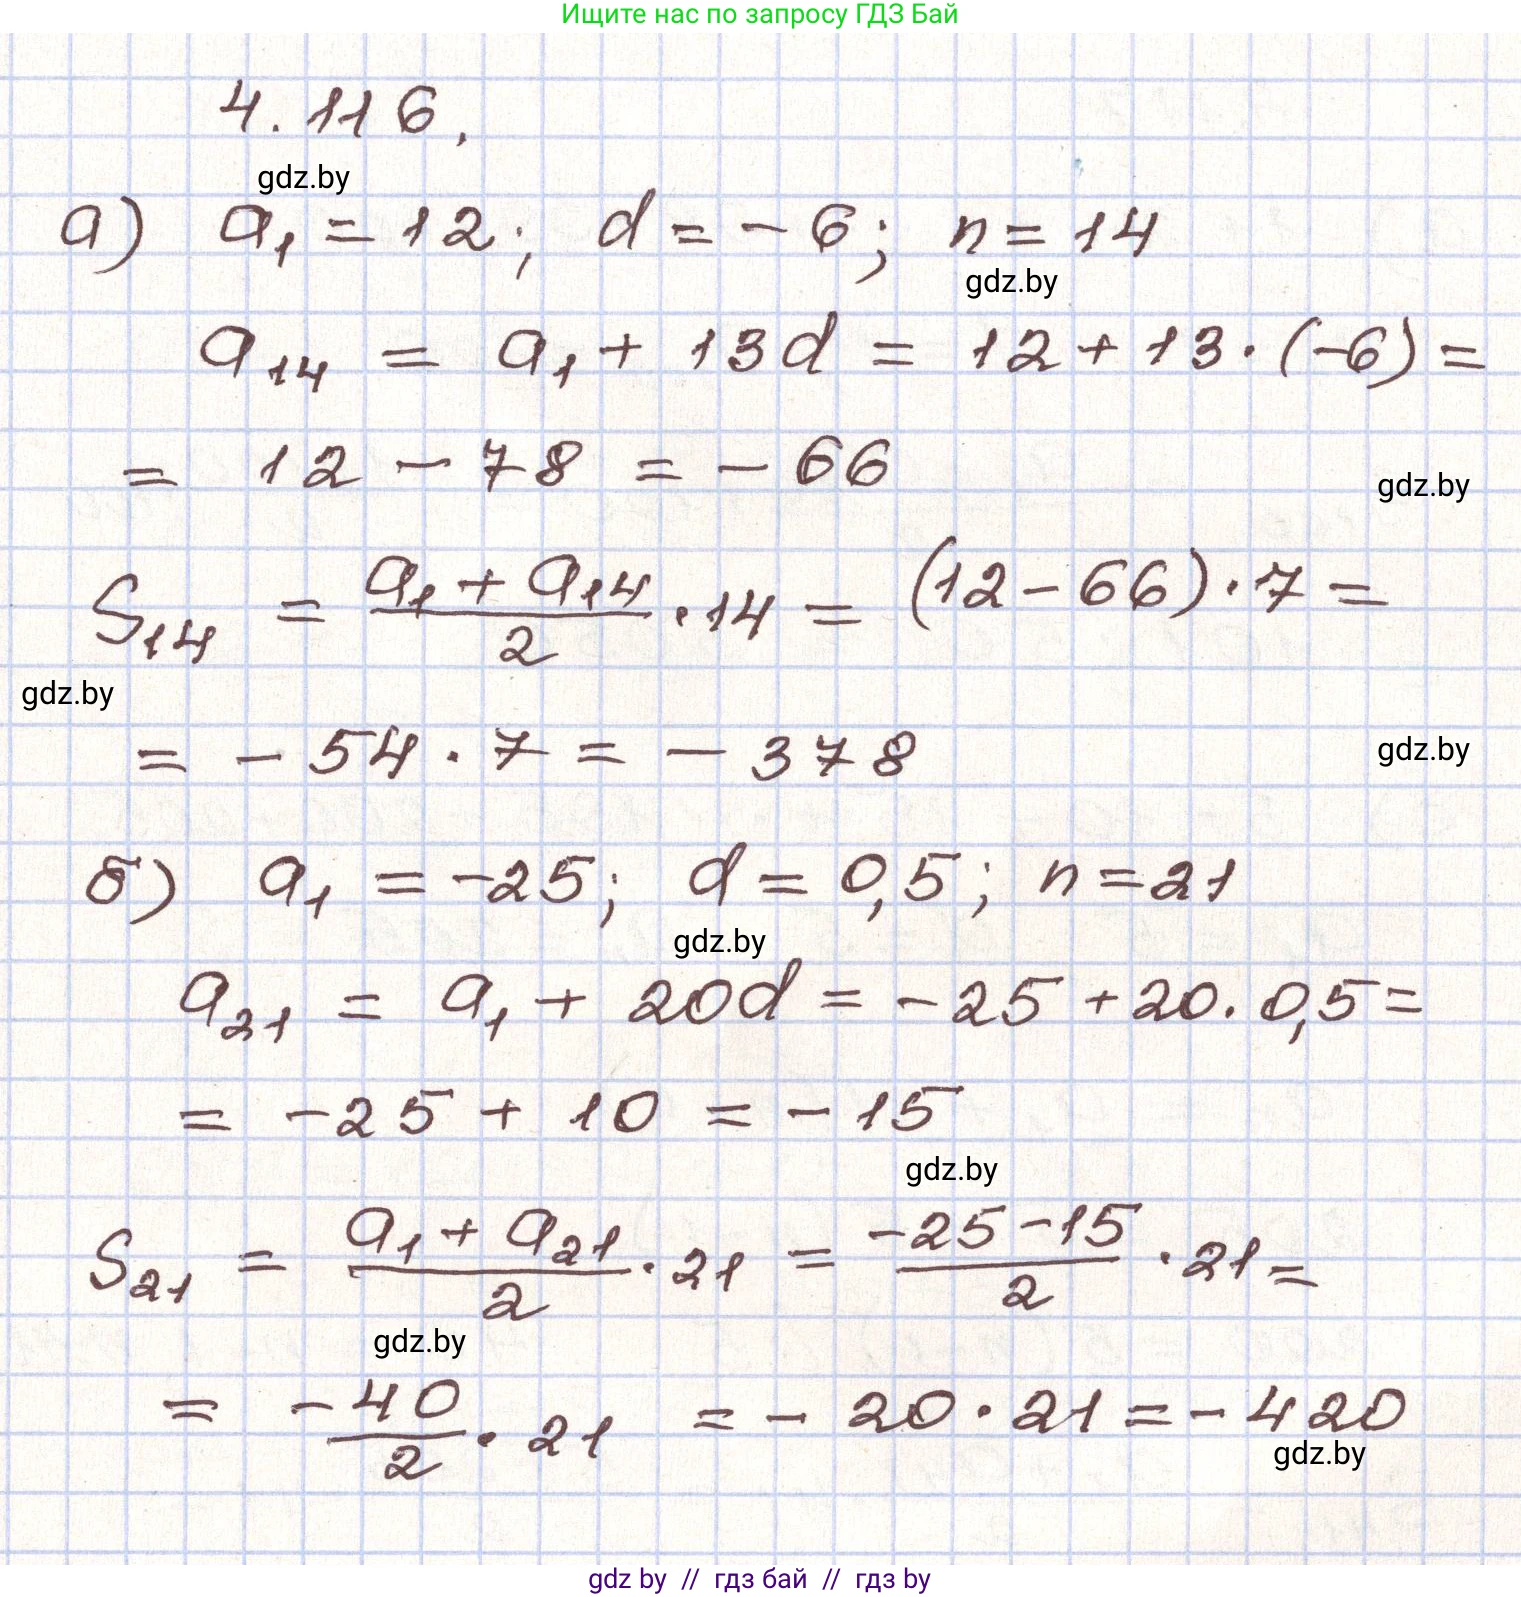 Ищите нас по запросу ГДЗ Бай
4.116.
gdz.by
а) a₁ = 12; d = -6; n = 14
gdz.by
a₁₄ = a₁ + 13d = 12 + 13 · (-6) =
= 12 - 78 = - 66
gdz.by
S₁₄ = (a₁ + a₁₄)/2 · 14 = (12 - 66) · 7 =
gdz.by
= - 54 · 7 = - 378
gdz.by
б) a₁ = -25; d = 0,5; n = 21
gdz.by
a₂₁ = a₁ + 20d = -25 + 20 · 0,5 =
= -25 + 10 = -15
gdz.by
S₂₁ = (a₁ + a₂₁)/2 · 21 = (-25 - 15)/2 · 21 =
gdz.by
= -40/2 · 21 = - 20 · 21 = - 420
gdz.by
gdz by // гдз бай // гдз by